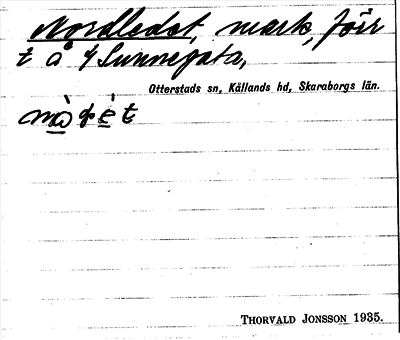 Nordledet, mark, förr
t å 4 Sunnegata,
Otterstads sn, Kållands hd, Skaraborgs län.
THORVALD JONSSON 1935.